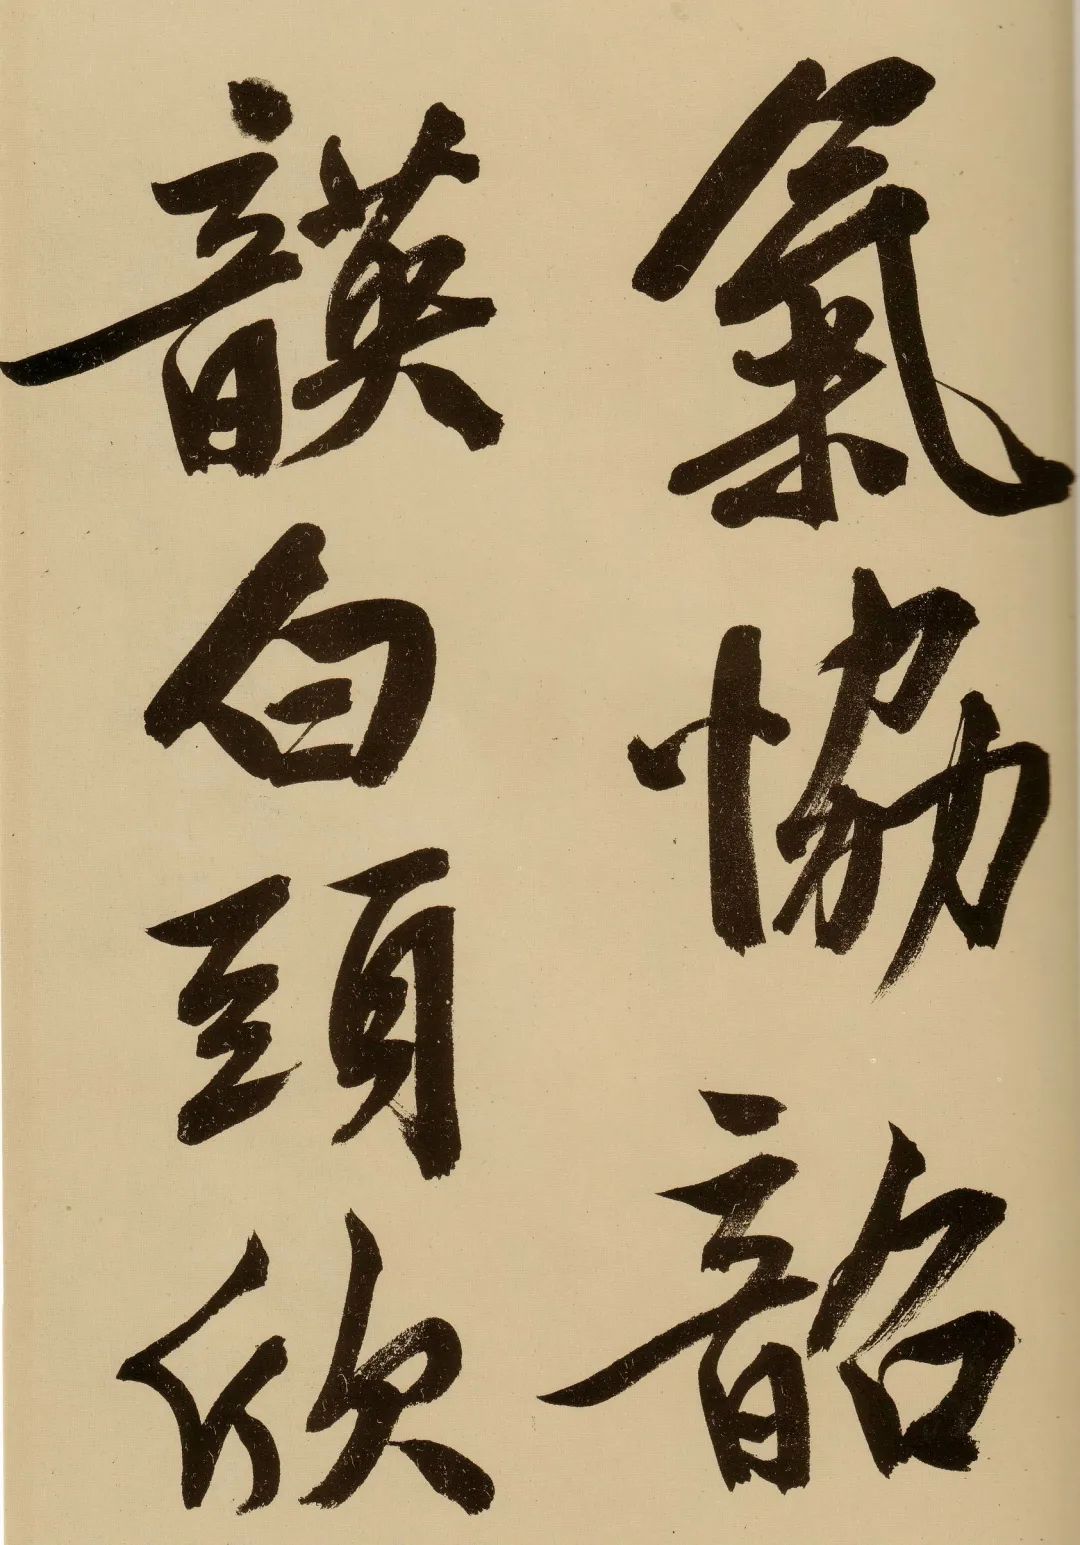 氣協韶
韺白頭欣